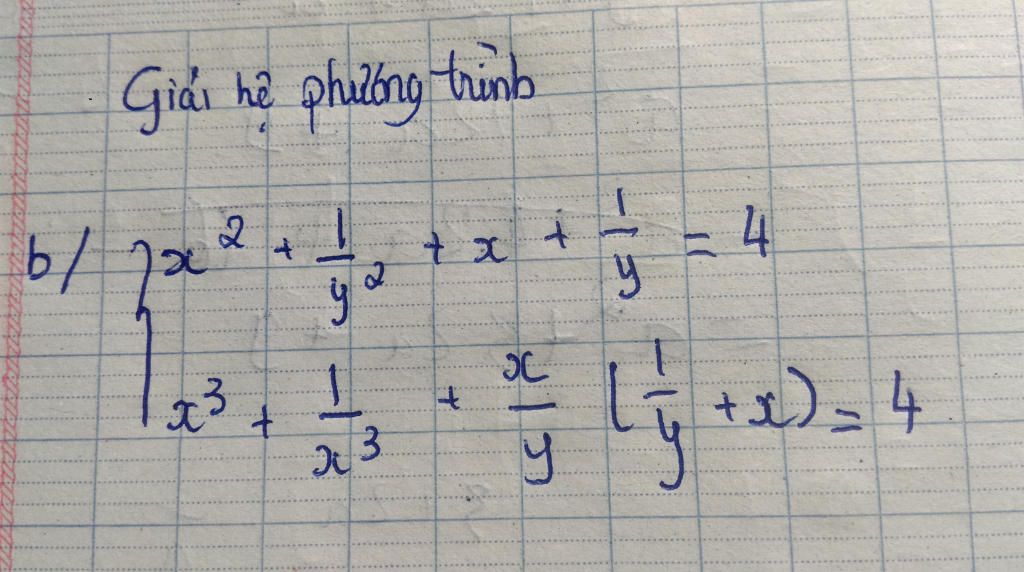 Giải hệ phương trình
b/ { x² + 1/y² + x + 1/y = 4
x³ + 1/x³ + x/y (1/y + x) = 4